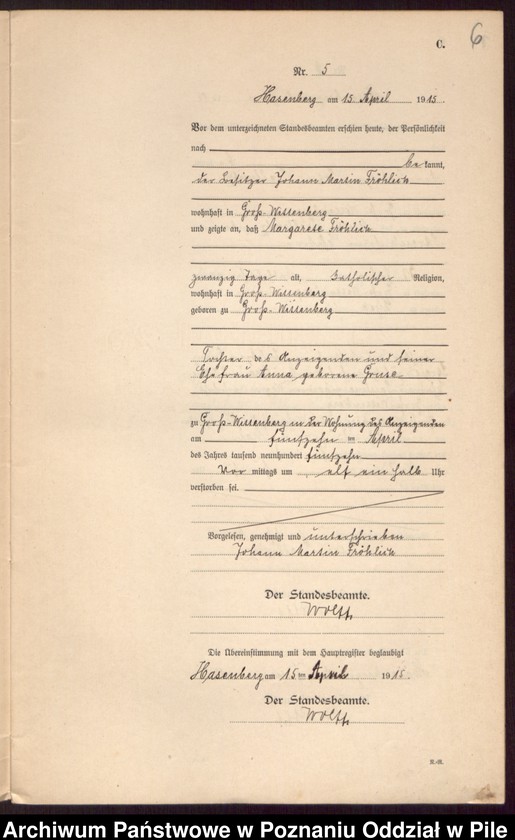 6
C.
Nr. 5
Hasenberg am 15 April 1915.
Vor dem unterzeichneten Standesbeamten erschien heute, der Persönlichkeit
nach
bekannt,
der Besitzer Johann Martin Fröhlich
wohnhaft in Groß-Wittenberg
und zeigte an, daß Margarete Fröhlich
zwanzig Tage alt, katholischer Religion,
wohnhaft in Groß-Wittenberg
geboren zu Groß-Wittenberg
Tochter des Anzeigenden und seiner
Ehefrau Anna, geborene
zu Groß-Wittenberg in der Wohnung des Anzeigenden
am fünfzehn ten April
des Jahres tausend neunhundert fünfzehn
Vor mittags um elf ein halb Uhr
verstorben sei.
Vorgelesen, genehmigt und unterschrieben
Johann Martin Fröhlich
Der Standesbeamte.
Die Übereinstimmung mit dem Hauptregister beglaubigt
Hasenberg am 15 ten April 1915.
Der Standesbeamte.
Archiwum Państwowe w Poznaniu Oddział w Pile